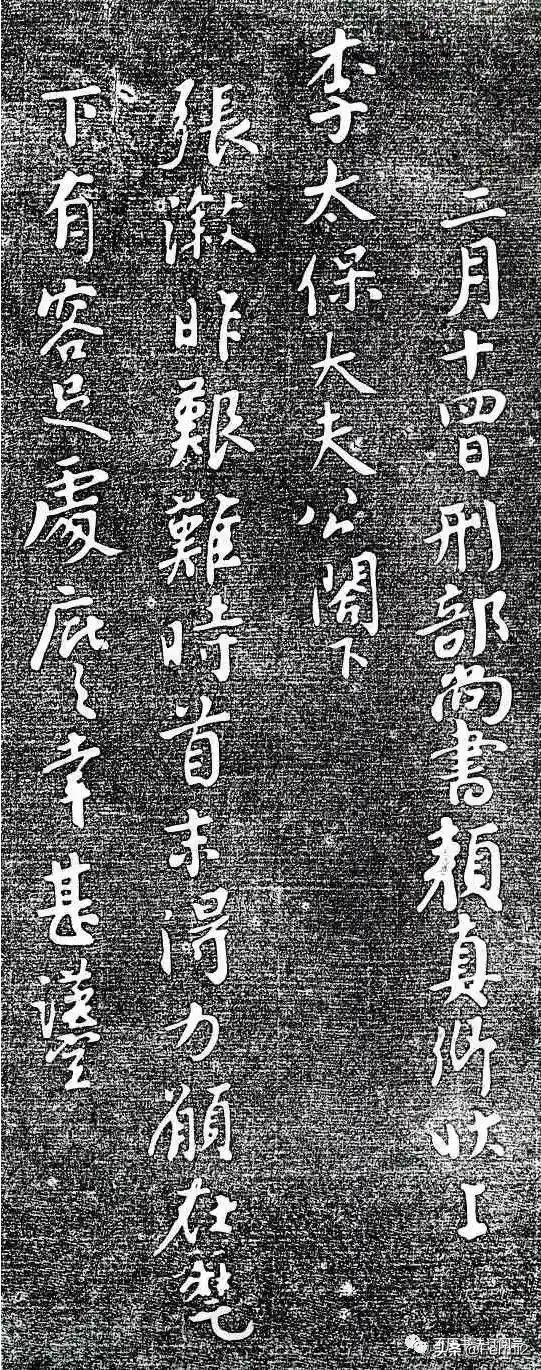 二月十四日刑部尚書顏真卿狀上
李太保大夫公閤下
張溆昨艱難時首末得力願在麾
下有容足處庇之幸甚謹空